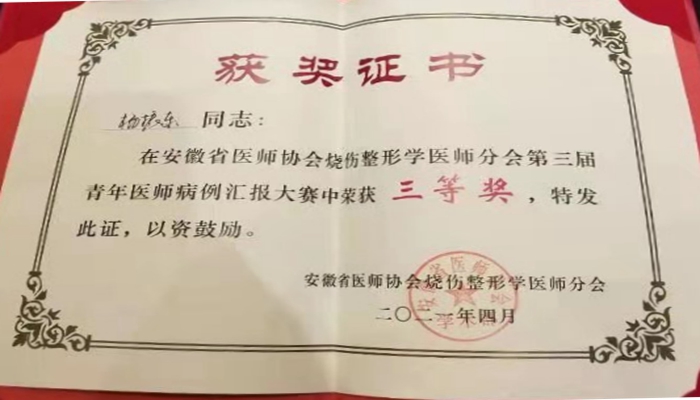 获奖证书
同志：
在安徽省医师协会烧伤整形学医师分会第三届
青年医师病例汇报大赛中荣获 三等奖，特发
此证，以资鼓励。
安徽省医师协会烧伤整形学医师分会
二〇二一年四月